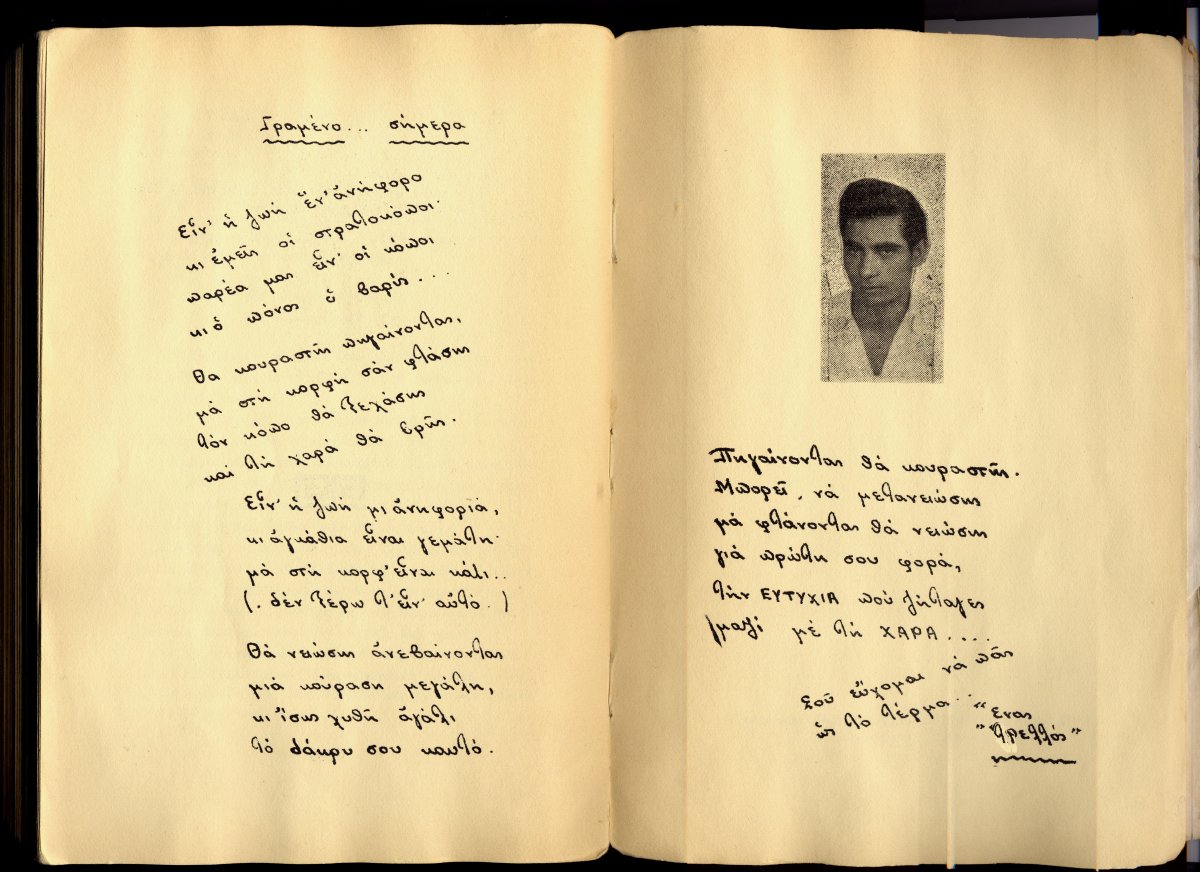 Γραμένο... σήμερα
Εἶν' ἡ ζωή ἕν' ἀνήφορο
κι ἐμεῖς οἱ στρατοκόποι·
παρέα μας εἶν' οἱ κόποι
κι ὁ πόνος ὁ βαρύς...
Θα κουραστῆς πηγαίνοντας,
μά στή κορφή σάν φτάσης
τόν κόπο θά ξεχάσης
καί τή χαρά θά βρῆς.
Εἶν' ἡ ζωή μι ἀνηφοριά,
κι ἀγκάθια εἶναι γεμάτη·
μά στή κορφ' εἶναι κάτι..
(. δέν ξέρω τ' εἶν' αὐτό. )
Θά νειώσης ἀνεβαίνοντας
μιά κούραση μεγάλη,
κι ἴσως χυθῆ ἀγάλι
τό δάκρυ σου καυτό.
Πηγαίνοντας θά κουραστῆς.
Μπορεῖ, νά μετανειώσης
μά φτάνοντας θά νειώσης
γιά πρώτη σου φορά,
τήν ΕΥΤΥΧΙΑ πού ζήταγες
μαζί μέ τή ΧΑΡΑ....
Σοῦ εὔχομαι νά πᾶς
ὥς τό τέρμα...
"Ενας
"τρελλός"